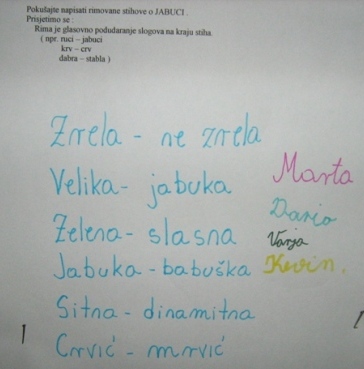 Pokušajte napisati rimovane stihove o JABUCI .
Prisjetimo se :
Rima je glasovno podudaranje slogova na kraju stiha.
( npr. ruci – jabuci
krv – crv
dabra – stabla )
Zrrela - ne zrrela
Velika - jabuka
Zelena - slasna
Jabuka - babuška
Sitna - dinamitna
Crrvić - mrrvić
Marta
Dario
Vanja
Kevin.